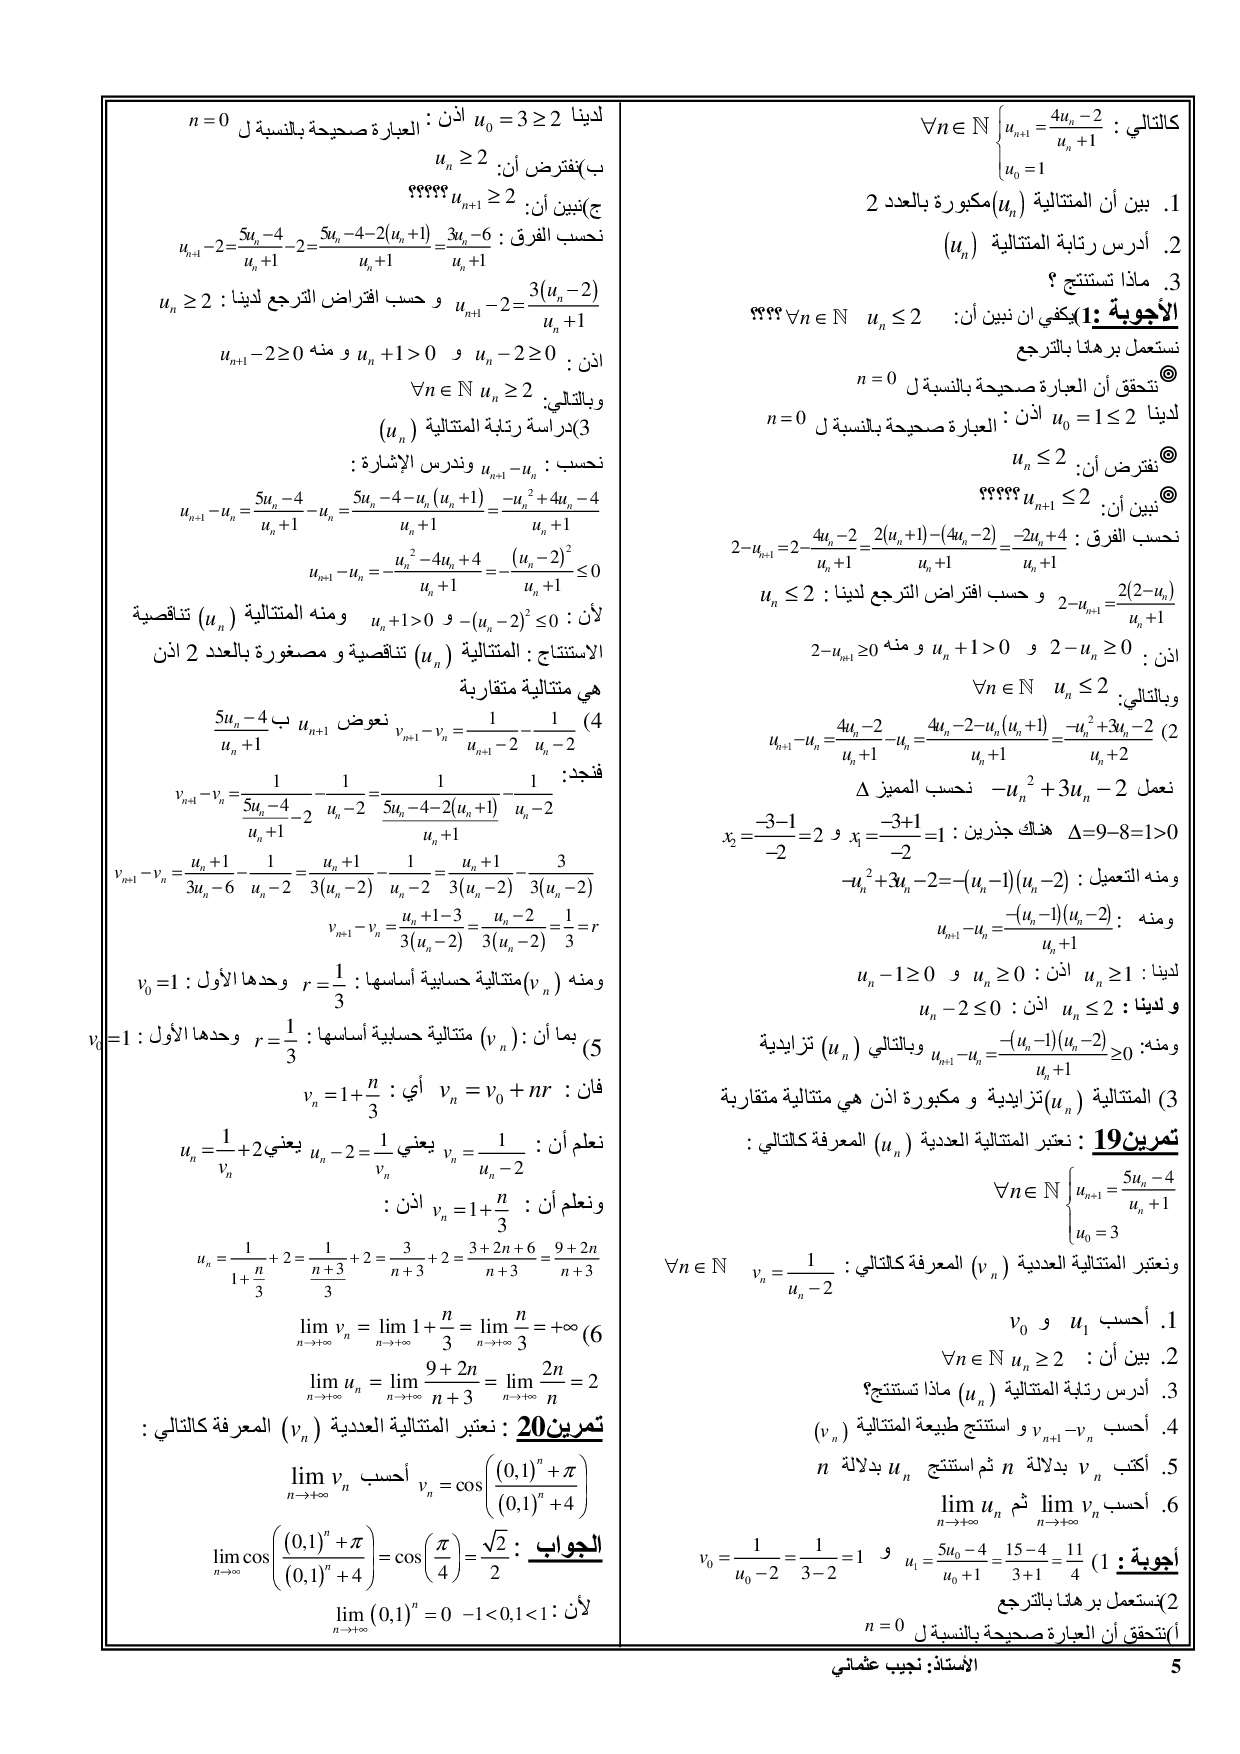 كالتالي : $\begin{cases} u_{n+1} = \frac{4u_n - 2}{u_n + 1} \\ u_0 = 1 \end{cases}$ $\forall n \in \mathbb{N}$
1. بين أن المتتالية $(u_n)$ مكبورة بالعدد 2
2. أدرس رتابة المتتالية $(u_n)$
3. ماذا تستنتج ؟
الأجوبة :1)يكفي ان نبين أن: $u_n \le 2$ $\forall n \in \mathbb{N}$ ؟؟؟؟
نستعمل برهانا بالترجع
◎نتحقق أن العبارة صحيحة بالنسبة ل $n = 0$
لدينا $u_0 = 1 \le 2$ اذن : العبارة صحيحة بالنسبة ل $n = 0$
◎نفترض أن: $u_n \le 2$
◎نبين أن: $u_{n+1} \le 2$ ؟؟؟؟؟
نحسب الفرق : $2 - u_{n+1} = 2 - \frac{4u_n - 2}{u_n + 1} = \frac{2(u_n + 1) - (4u_n - 2)}{u_n + 1} = \frac{-2u_n + 4}{u_n + 1}$
$2 - u_{n+1} = \frac{2(2 - u_n)}{u_n + 1}$ و حسب افتراض الترجع لدينا : $u_n \le 2$
اذن : $2 - u_n \ge 0$ و $u_n + 1 > 0$ و منه $2 - u_{n+1} \ge 0$
وبالتالي: $u_n \le 2$ $\forall n \in \mathbb{N}$
2) $u_{n+1} - u_n = \frac{4u_n - 2}{u_n + 1} - u_n = \frac{4u_n - 2 - u_n(u_n + 1)}{u_n + 1} = \frac{-u_n^2 + 3u_n - 2}{u_n + 2}$
نعمل $-u_n^2 + 3u_n - 2$ نحسب المميز $\Delta$
$\Delta = 9 - 8 = 1 > 0$ هناك جذرين : $x_1 = \frac{-3+1}{-2} = 1$ و $x_2 = \frac{-3-1}{-2} = 2$
ومنه التعميل : $-u_n^2 + 3u_n - 2 = -(u_n - 1)(u_n - 2)$
ومنه : $u_{n+1} - u_n = \frac{-(u_n - 1)(u_n - 2)}{u_n + 1}$
لدينا : $u_n \ge 1$ اذن : $u_n \ge 0$ و $u_n - 1 \ge 0$
و لدينا : $u_n \le 2$ اذن : $u_n - 2 \le 0$
ومنه: $u_{n+1} - u_n = \frac{-(u_n - 1)(u_n - 2)}{u_n + 1} \ge 0$ وبالتالي $(u_n)$ تزايدية
3) المتتالية $(u_n)$ تزايدية و مكبورة اذن هي متتالية متقاربة
تمرين19 : نعتبر المتتالية العددية $(u_n)$ المعرفة كالتالي :
$\begin{cases} u_{n+1} = \frac{5u_n - 4}{u_n + 1} \\ u_0 = 3 \end{cases}$ $\forall n \in \mathbb{N}$
ونعتبر المتتالية العددية $(v_n)$ المعرفة كالتالي : $v_n = \frac{1}{u_n - 2}$ $\forall n \in \mathbb{N}$
1. أحسب $u_1$ و $v_0$
2. بين أن : $u_n \ge 2$ $\forall n \in \mathbb{N}$
3. أدرس رتابة المتتالية $(u_n)$ ماذا تستنتج؟
4. أحسب $v_{n+1} - v_n$ و استنتج طبيعة المتتالية $(v_n)$
5. أكتب $v_n$ بدلالة $n$ ثم استنتج $u_n$ بدلالة $n$
6. أحسب $\lim_{n \to +\infty} v_n$ ثم $\lim_{n \to +\infty} u_n$
أجوبة : 1) $u_1 = \frac{5u_0 - 4}{u_0 + 1} = \frac{15 - 4}{3 + 1} = \frac{11}{4}$ و $v_0 = \frac{1}{u_0 - 2} = \frac{1}{3 - 2} = 1$
2)نستعمل برهانا بالترجع
أ)نتحقق أن العبارة صحيحة بالنسبة ل $n = 0$
لدينا $u_0 = 3 \ge 2$ اذن : العبارة صحيحة بالنسبة ل $n = 0$
ب)نفترض أن: $u_n \ge 2$
ج)نبين أن: $u_{n+1} \ge 2$ ؟؟؟؟؟
نحسب الفرق : $u_{n+1} - 2 = \frac{5u_n - 4}{u_n + 1} - 2 = \frac{5u_n - 4 - 2(u_n + 1)}{u_n + 1} = \frac{3u_n - 6}{u_n + 1}$
$u_{n+1} - 2 = \frac{3(u_n - 2)}{u_n + 1}$ و حسب افتراض الترجع لدينا : $u_n \ge 2$
اذن : $u_n - 2 \ge 0$ و $u_n + 1 > 0$ و منه $u_{n+1} - 2 \ge 0$
وبالتالي: $u_n \ge 2$ $\forall n \in \mathbb{N}$
3)دراسة رتابة المتتالية $(u_n)$
نحسب : $u_{n+1} - u_n$ وندرس الإشارة :
$u_{n+1} - u_n = \frac{5u_n - 4}{u_n + 1} - u_n = \frac{5u_n - 4 - u_n(u_n + 1)}{u_n + 1} = \frac{-u_n^2 + 4u_n - 4}{u_n + 1}$
$u_{n+1} - u_n = -\frac{u_n^2 - 4u_n + 4}{u_n + 1} = -\frac{(u_n - 2)^2}{u_n + 1} \le 0$
لأن : $-(u_n - 2)^2 \le 0$ و $u_n + 1 > 0$ ومنه المتتالية $(u_n)$ تناقصية
الاستنتاج : المتتالية $(u_n)$ تناقصية و مصغورة بالعدد 2 اذن
هي متتالية متقاربة
4) $v_{n+1} - v_n = \frac{1}{u_{n+1} - 2} - \frac{1}{u_n - 2}$ نعوض $u_{n+1}$ ب $\frac{5u_n - 4}{u_n + 1}$
فنجد: $v_{n+1} - v_n = \frac{1}{\frac{5u_n - 4}{u_n + 1} - 2} - \frac{1}{u_n - 2} = \frac{1}{\frac{5u_n - 4 - 2(u_n + 1)}{u_n + 1}} - \frac{1}{u_n - 2}$
$v_{n+1} - v_n = \frac{u_n + 1}{3u_n - 6} - \frac{1}{u_n - 2} = \frac{u_n + 1}{3(u_n - 2)} - \frac{1}{u_n - 2} = \frac{u_n + 1}{3(u_n - 2)} - \frac{3}{3(u_n - 2)}$
$v_{n+1} - v_n = \frac{u_n + 1 - 3}{3(u_n - 2)} = \frac{u_n - 2}{3(u_n - 2)} = \frac{1}{3} = r$
ومنه $(v_n)$ متتالية حسابية أساسها : $r = \frac{1}{3}$ وحدها الأول : $v_0 = 1$
5) بما أن : $(v_n)$ متتالية حسابية أساسها : $r = \frac{1}{3}$ وحدها الأول : $v_0 = 1$
فان : $v_n = v_0 + nr$ أي : $v_n = 1 + \frac{n}{3}$
نعلم أن : $v_n = \frac{1}{u_n - 2}$ يعني $u_n - 2 = \frac{1}{v_n}$ يعني $u_n = \frac{1}{v_n} + 2$
ونعلم أن : $v_n = 1 + \frac{n}{3}$ اذن :
$u_n = \frac{1}{1 + \frac{n}{3}} + 2 = \frac{1}{\frac{n + 3}{3}} + 2 = \frac{3}{n + 3} + 2 = \frac{3 + 2n + 6}{n + 3} = \frac{9 + 2n}{n + 3}$
6) $\lim_{n \to +\infty} v_n = \lim_{n \to +\infty} 1 + \frac{n}{3} = \lim_{n \to +\infty} \frac{n}{3} = +\infty$
$\lim_{n \to +\infty} u_n = \lim_{n \to +\infty} \frac{9 + 2n}{n + 3} = \lim_{n \to +\infty} \frac{2n}{n} = 2$
تمرين20 : نعتبر المتتالية العددية $(v_n)$ المعرفة كالتالي :
$v_n = \cos\left(\frac{(0,1)^n + \pi}{(0,1)^n + 4}\right)$ أحسب $\lim_{n \to +\infty} v_n$
الجواب : $\lim_{n \to \infty} \cos\left(\frac{(0,1)^n + \pi}{(0,1)^n + 4}\right) = \cos\left(\frac{\pi}{4}\right) = \frac{\sqrt{2}}{2}$
لأن : $-1 < 0,1 < 1$ $\lim_{n \to +\infty} (0,1)^n = 0$
الأستاذ: نجيب عثماني
5